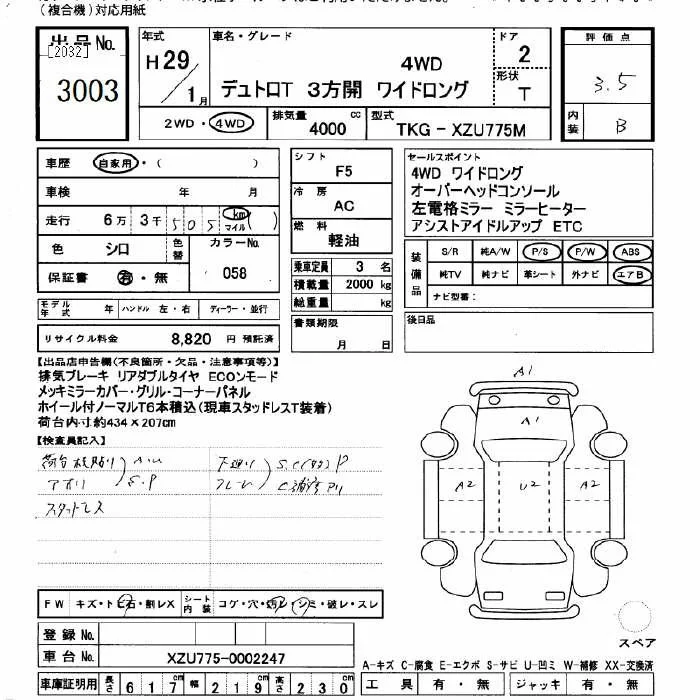 (複合機)対応用紙
出品No.
[2032]
3003
年式
H29/1月
車名・グレード
4WD
デュトロT 3方開 ワイドロング
ドア
2
形状
T
評価点
3.5
内装
B
2WD・4WD
排気量
4000 cc
型式
TKG-XZU775M
車歴 自家用・( )
車検 年 月
走行 6万 3千 505 km マイル ( )
色 シロ 色替 カラーNo.
058
保証書 有・無
シフト
F5
冷房
AC
燃料
軽油
乗車定員 3 名
積載量 2000 kg
総重量 kg
書類期限
月 日
セールスポイント
4WD ワイドロング
オーバーヘッドコンソール
左電格ミラー ミラーヒーター
アシストアイドルアップ ETC
装備品
S/R 純A/W P/S P/W ABS
純TV 純ナビ 革シート 外ナビ エアB
ナビ型番:
後日品
モデル年式 年 ハンドル 左・右 ディーラー・並行
リサイクル料金 8,820 円 預託済
【出品店申告欄(不良箇所・欠品・注意事項等)】
排気ブレーキ リアダブルタイヤ ECOンモード
メッキミラーカバー・グリル・コーナーパネル
ホイール付ノーマルT6本積込(現車スタッドレスT装着)
荷台内寸約434×207cm
【検査員記入】
荷台 板貼り A.U 下廻り S.C(多) P
アオリ S.P フレーム C補修アリ
スタットレス
A1
A1
A2 U2 A2
スペア
FW キズ・トビ石・割レX シート内装 コゲ・穴・汚レ・シミ・破レ・スレ
登録No.
車台No. XZU775-0002247
車庫証明用 長さ 617 幅 219 高さ 230
A-キズ C-腐食 E-エクボ S-サビ U-凹ミ W-補修 XX-交換済
工具 有・無 ジャッキ 有・無